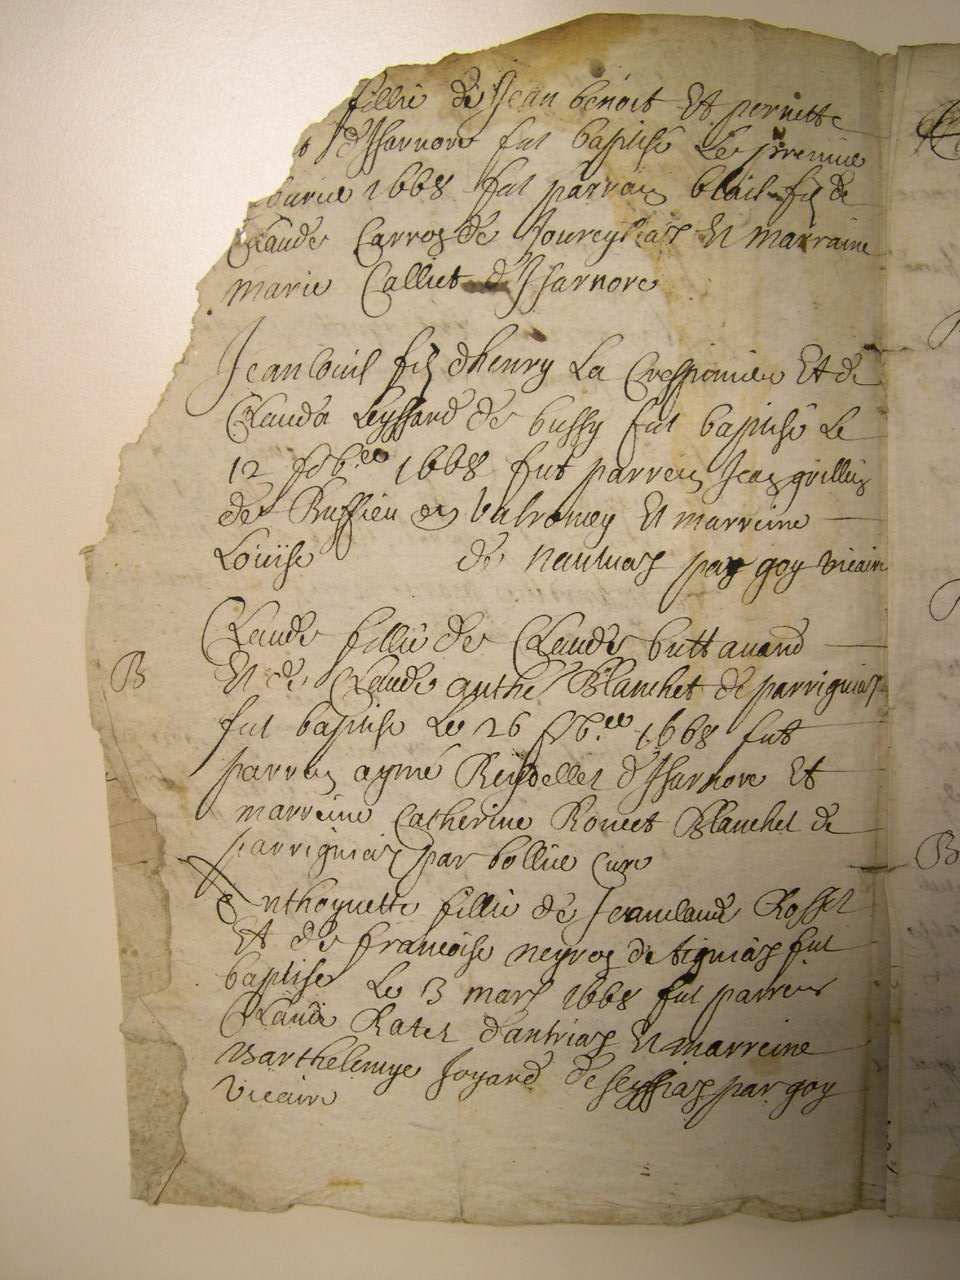 fillie de Jean benoit Et pernette
d'Isarnore fut baptisé Le premier
1668 fut parrain blais fils de
Claude Carroz de Et marraine
marie Calliet d'Isarnore
Jean louis filz d'henry La Et de
Clauda Leyssard de bussy fut baptisé Le
12 febr.er 1668 fut parrein Jean grillier
de Ruffieu en Valromey Et marreine
Loüise de nantuas par goy vicaire
Claude fillie de Claude buttauand
B
Et de Claude anthe Blanchet de parrignias
fut baptisé Le 26 1668 fut
parrein aymé d'Isarnore Et
marreine Catherine Blanchet de
parrignias par bollie curé
Anthoynette fillie de Jeanclaude Rosset
Et de francoise neyroz de tignias fut
baptisé Le 3 mars 1668 fut parrein
Claude Ratel d'antrias Et marreine
Barthelemye Joyard de seyssias par goy
vicaire
B